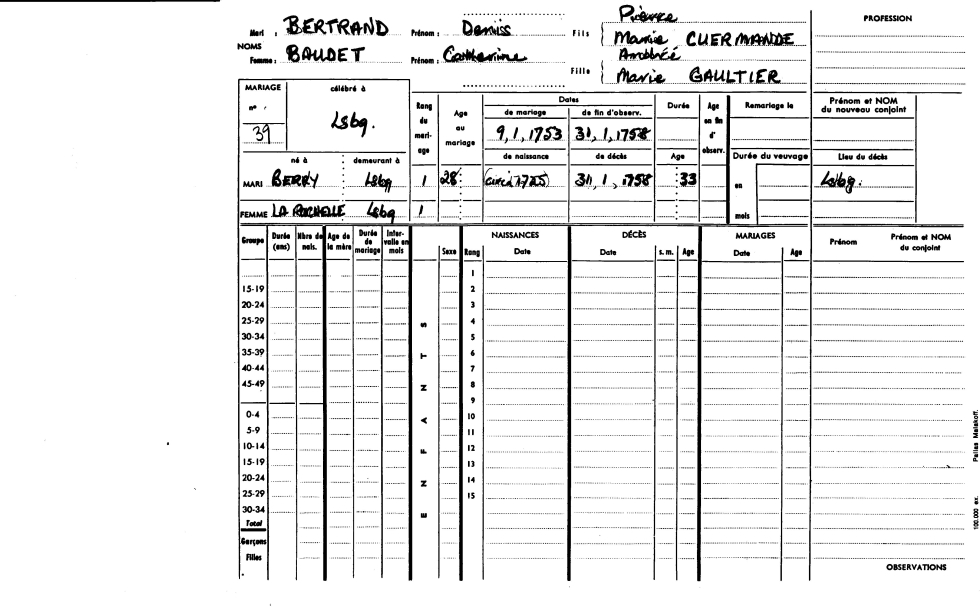 Mari : BERTRAND Prénom : Deniss Fils { Pierre
Marie CUERMANDE PROFESSION
NOMS
Femme : BAUDET Prénom : Catherine Fille { Ambroise
Marie GAULTIER
MARIAGE célébré à
n° 39 Lsbg.
Rang du mariage Age au mariage Dates Durée Age en fin d'observ. Remariage le Prénom et NOM du nouveau conjoint
de mariage de fin d'observ.
9,1,1753 31,1,1758
de naissance de décès Age Durée du veuvage Lieu du décès
né à demeurant à
MARI BERRY Lsbg 1 28 (circa 1725) 31,1,1758 33 en Lsbg.
FEMME LA ROCHELLE Lsbg 1 mois
Groupe Durée (ans) Nbre de nais. Age de la mère Durée de mariage Intervalle en mois Sexe Rang NAISSANCES DÉCÈS MARIAGES Prénom Prénom et NOM du conjoint
Date Date s. m. Age Date Age
1
15-19 2
20-24 3
25-29 4
30-34 5
35-39 6
40-44 7
45-49 8
9
0-4 10
5-9 11
10-14 12
15-19 13
20-24 14
25-29 15
30-34
Total
Garçons
Filles
ENFANTS
OBSERVATIONS
100.000 ex. Pallas Malakoff.